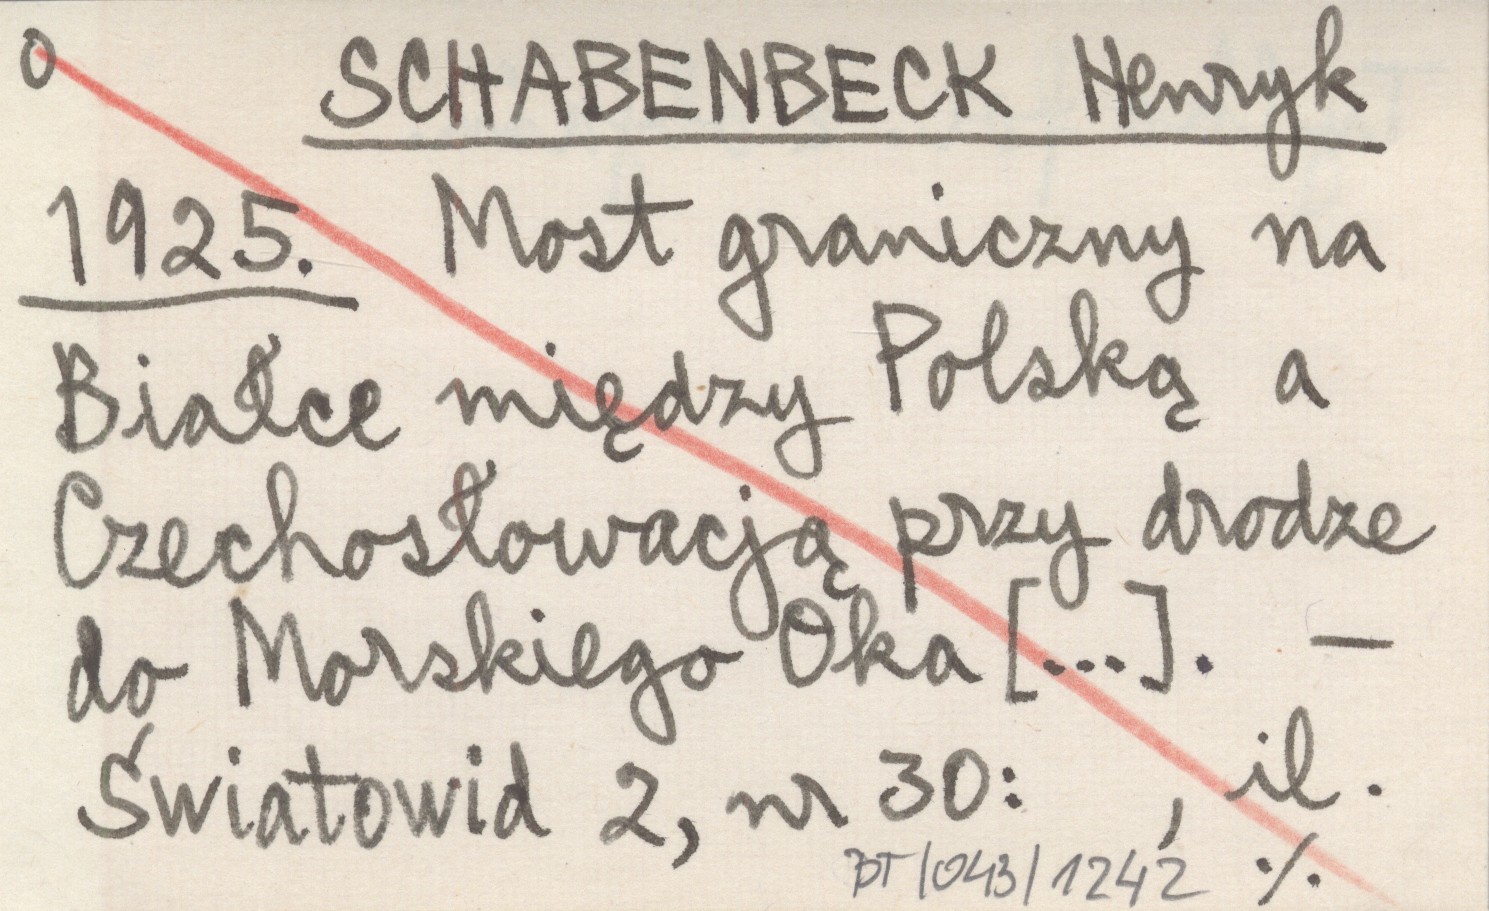 0 SCHABENBECK Henryk
1925. Most graniczny na
Białce między Polską a
Czechosłowacją przy drodze
do Morskiego Oka [...]. —
Światowid 2, nr 30: , il.
BT/043/1242 ./.